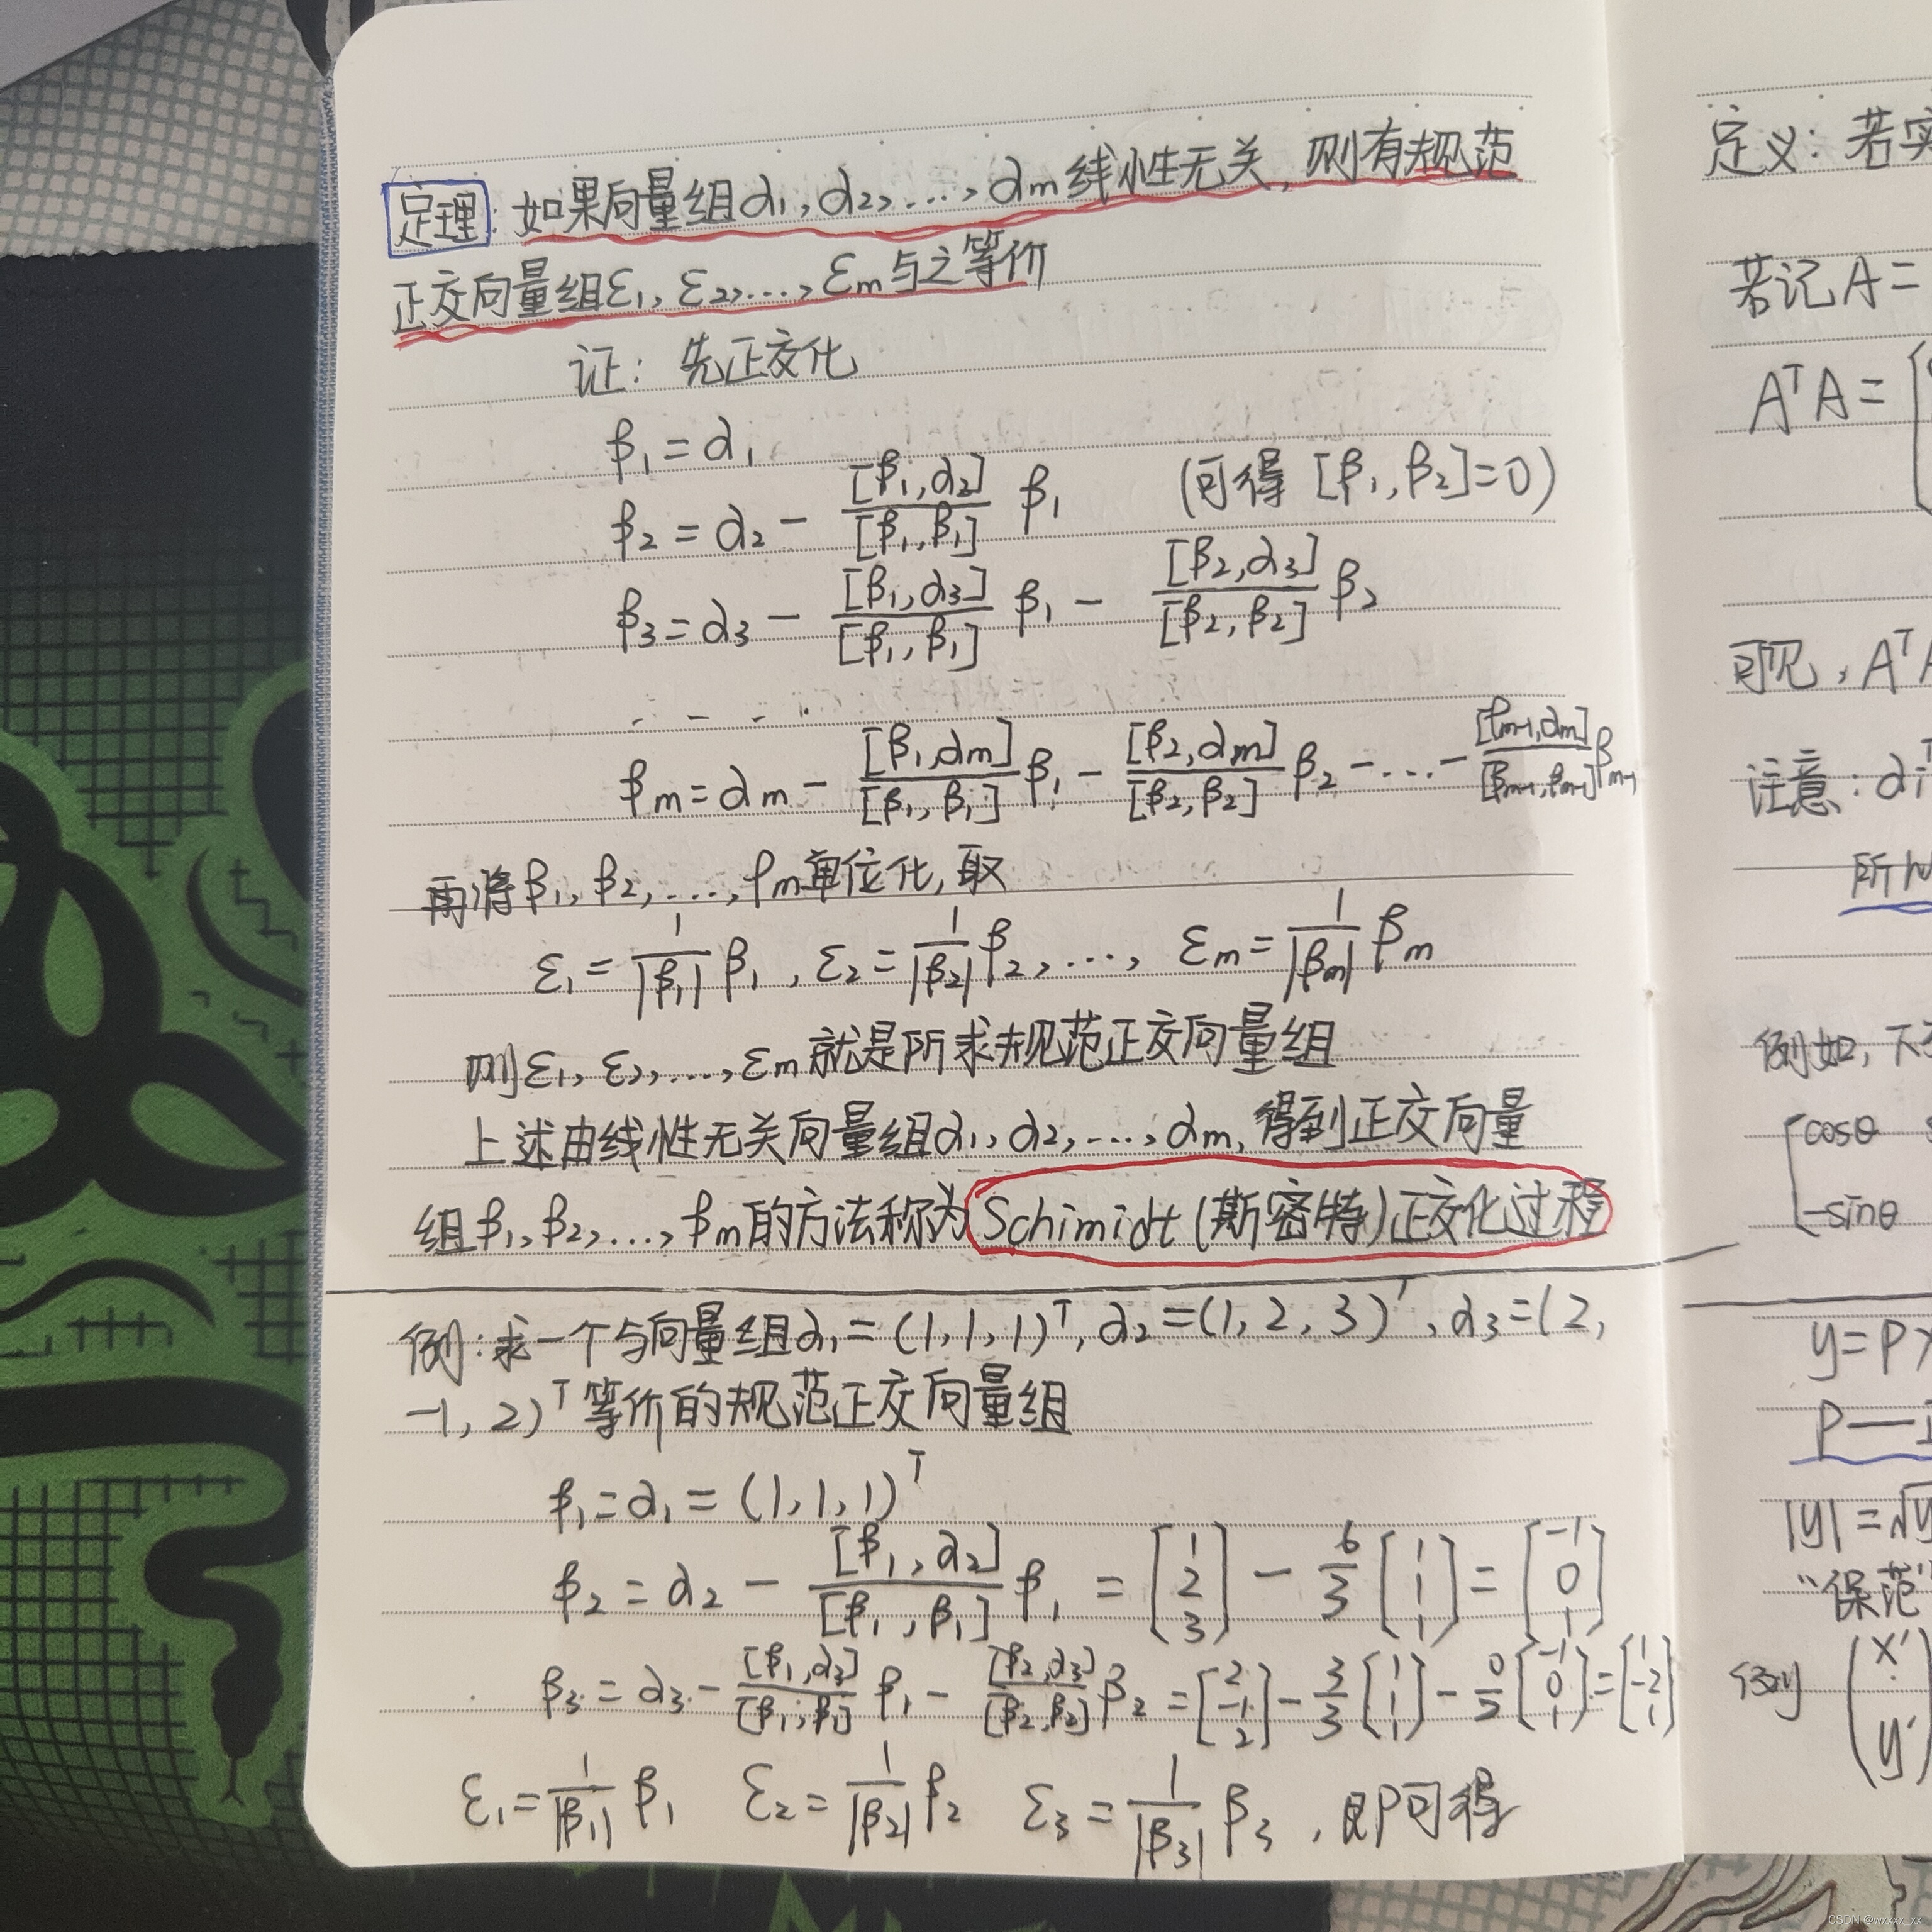 定理: 如果向量组α₁, α₂, ..., αm线性无关, 则有规范
正交向量组ε₁, ε₂, ..., εm与之等价
证: 先正交化
β₁ = α₁
β₂ = α₂ - [β₁,α₂]/[β₁,β₁] β₁ (可得 [β₁,β₂]=0)
β₃ = α₃ - [β₁,α₃]/[β₁,β₁] β₁ - [β₂,α₃]/[β₂,β₂] β₂
. - - - -
βm = αm - [β₁,αm]/[β₁,β₁] β₁ - [β₂,αm]/[β₂,β₂] β₂ - ... - [βm-1,αm]/[βm-1,βm-1] βm-1
再将β₁, β₂, ..., βm单位化, 取
ε₁ = 1/|β₁| β₁, ε₂ = 1/|β₂| β₂, ..., εm = 1/|βm| βm
则ε₁, ε₂, ..., εm就是所求规范正交向量组
上述由线性无关向量组α₁, α₂, ..., αm, 得到正交向量
组β₁, β₂, ..., βm的方法称为Schimidt(斯密特)正交化过程
例: 求一个与向量组α₁ = (1, 1, 1)ᵀ, α₂ = (1, 2, 3)ᵀ, α₃ = (2,
-1, 2)ᵀ等价的规范正交向量组
β₁ = α₁ = (1, 1, 1)ᵀ
β₂ = α₂ - [β₁,α₂]/[β₁,β₁] β₁ = [1 2 3] - 6/3 [1 1 1] = [-1 0 1]
β₃ = α₃ - [β₁,α₃]/[β₁,β₁] β₁ - [β₂,α₃]/[β₂,β₂] β₂ = [2 -1 2] - 3/3 [1 1 1] - 0/2 [-1 0 1] = [1 -2 1]
ε₁ = 1/|β₁| β₁ ε₂ = 1/|β₂| β₂ ε₃ = 1/|β₃| β₃, 即可得
定义: 若实
若记A =
AᵀA = [
可见, AᵀA
注意: αᵢᵀ
所以
例如, 下
[cosθ
-sinθ
y = Px
P —
|y| = √y
"保范"
(x'
y'
CSDN @wxxxx_xx